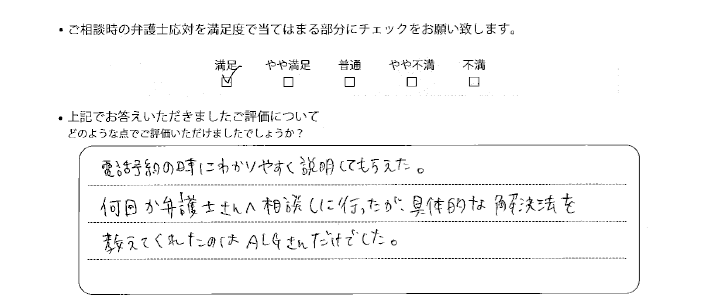 ・ご相談時の弁護士応対を満足度で当てはまる部分にチェックをお願い致します。
満足 やや満足 普通 やや不満 不満
☑ □ □ □ □
・上記でお答えいただきましたご評価について
どのような点でご評価いただけましたでしょうか？
電話予約の時にわかりやすく説明してもらえた。
何回か弁護士さんへ相談しに行ったが、具体的な解決法を
教えてくれたのはALGさんだけでした。